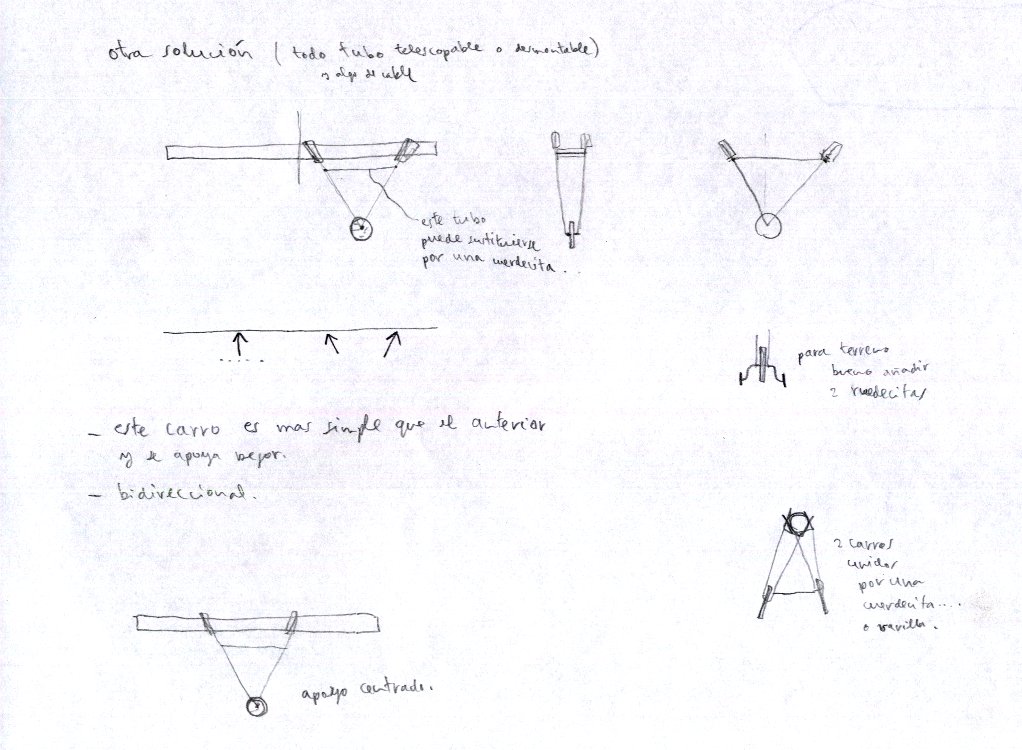 otra solución (todo tubo telescopable o desmontable)
y algo de cable
este tubo
puede sustituirse
por una cuerdecita...
para terreno
bueno añadir
2 ruedecitas
- este carro es mas simple que el anterior
y se apoya mejor.
- bidireccional.
2 carros
unidos
por una
cuerdecita....
o varilla.
apoyo centrado.